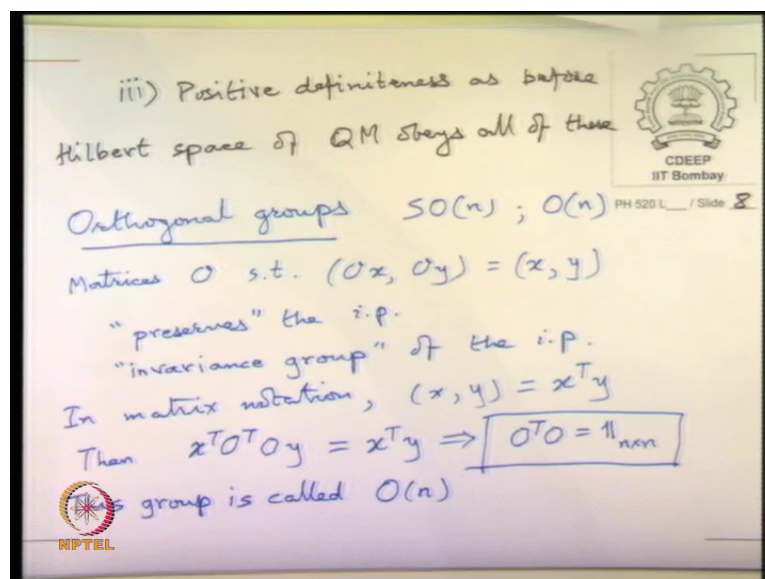 iii) Positive definiteness as before
Hilbert space of QM obeys all of these
CDEEP
IIT Bombay
Orthogonal groups SO(n) ; O(n)
PH 520 L___ / Slide 8
Matrices O s.t. (Ox, Oy) = (x, y)
"preserves" the i.p.
"invariance group" of the i.p.
In matrix notation, (x, y) = xᵀy
Then xᵀOᵀOy = xᵀy ⇒ OᵀO = 𝟙ₙₓₙ
This group is called O(n)
NPTEL